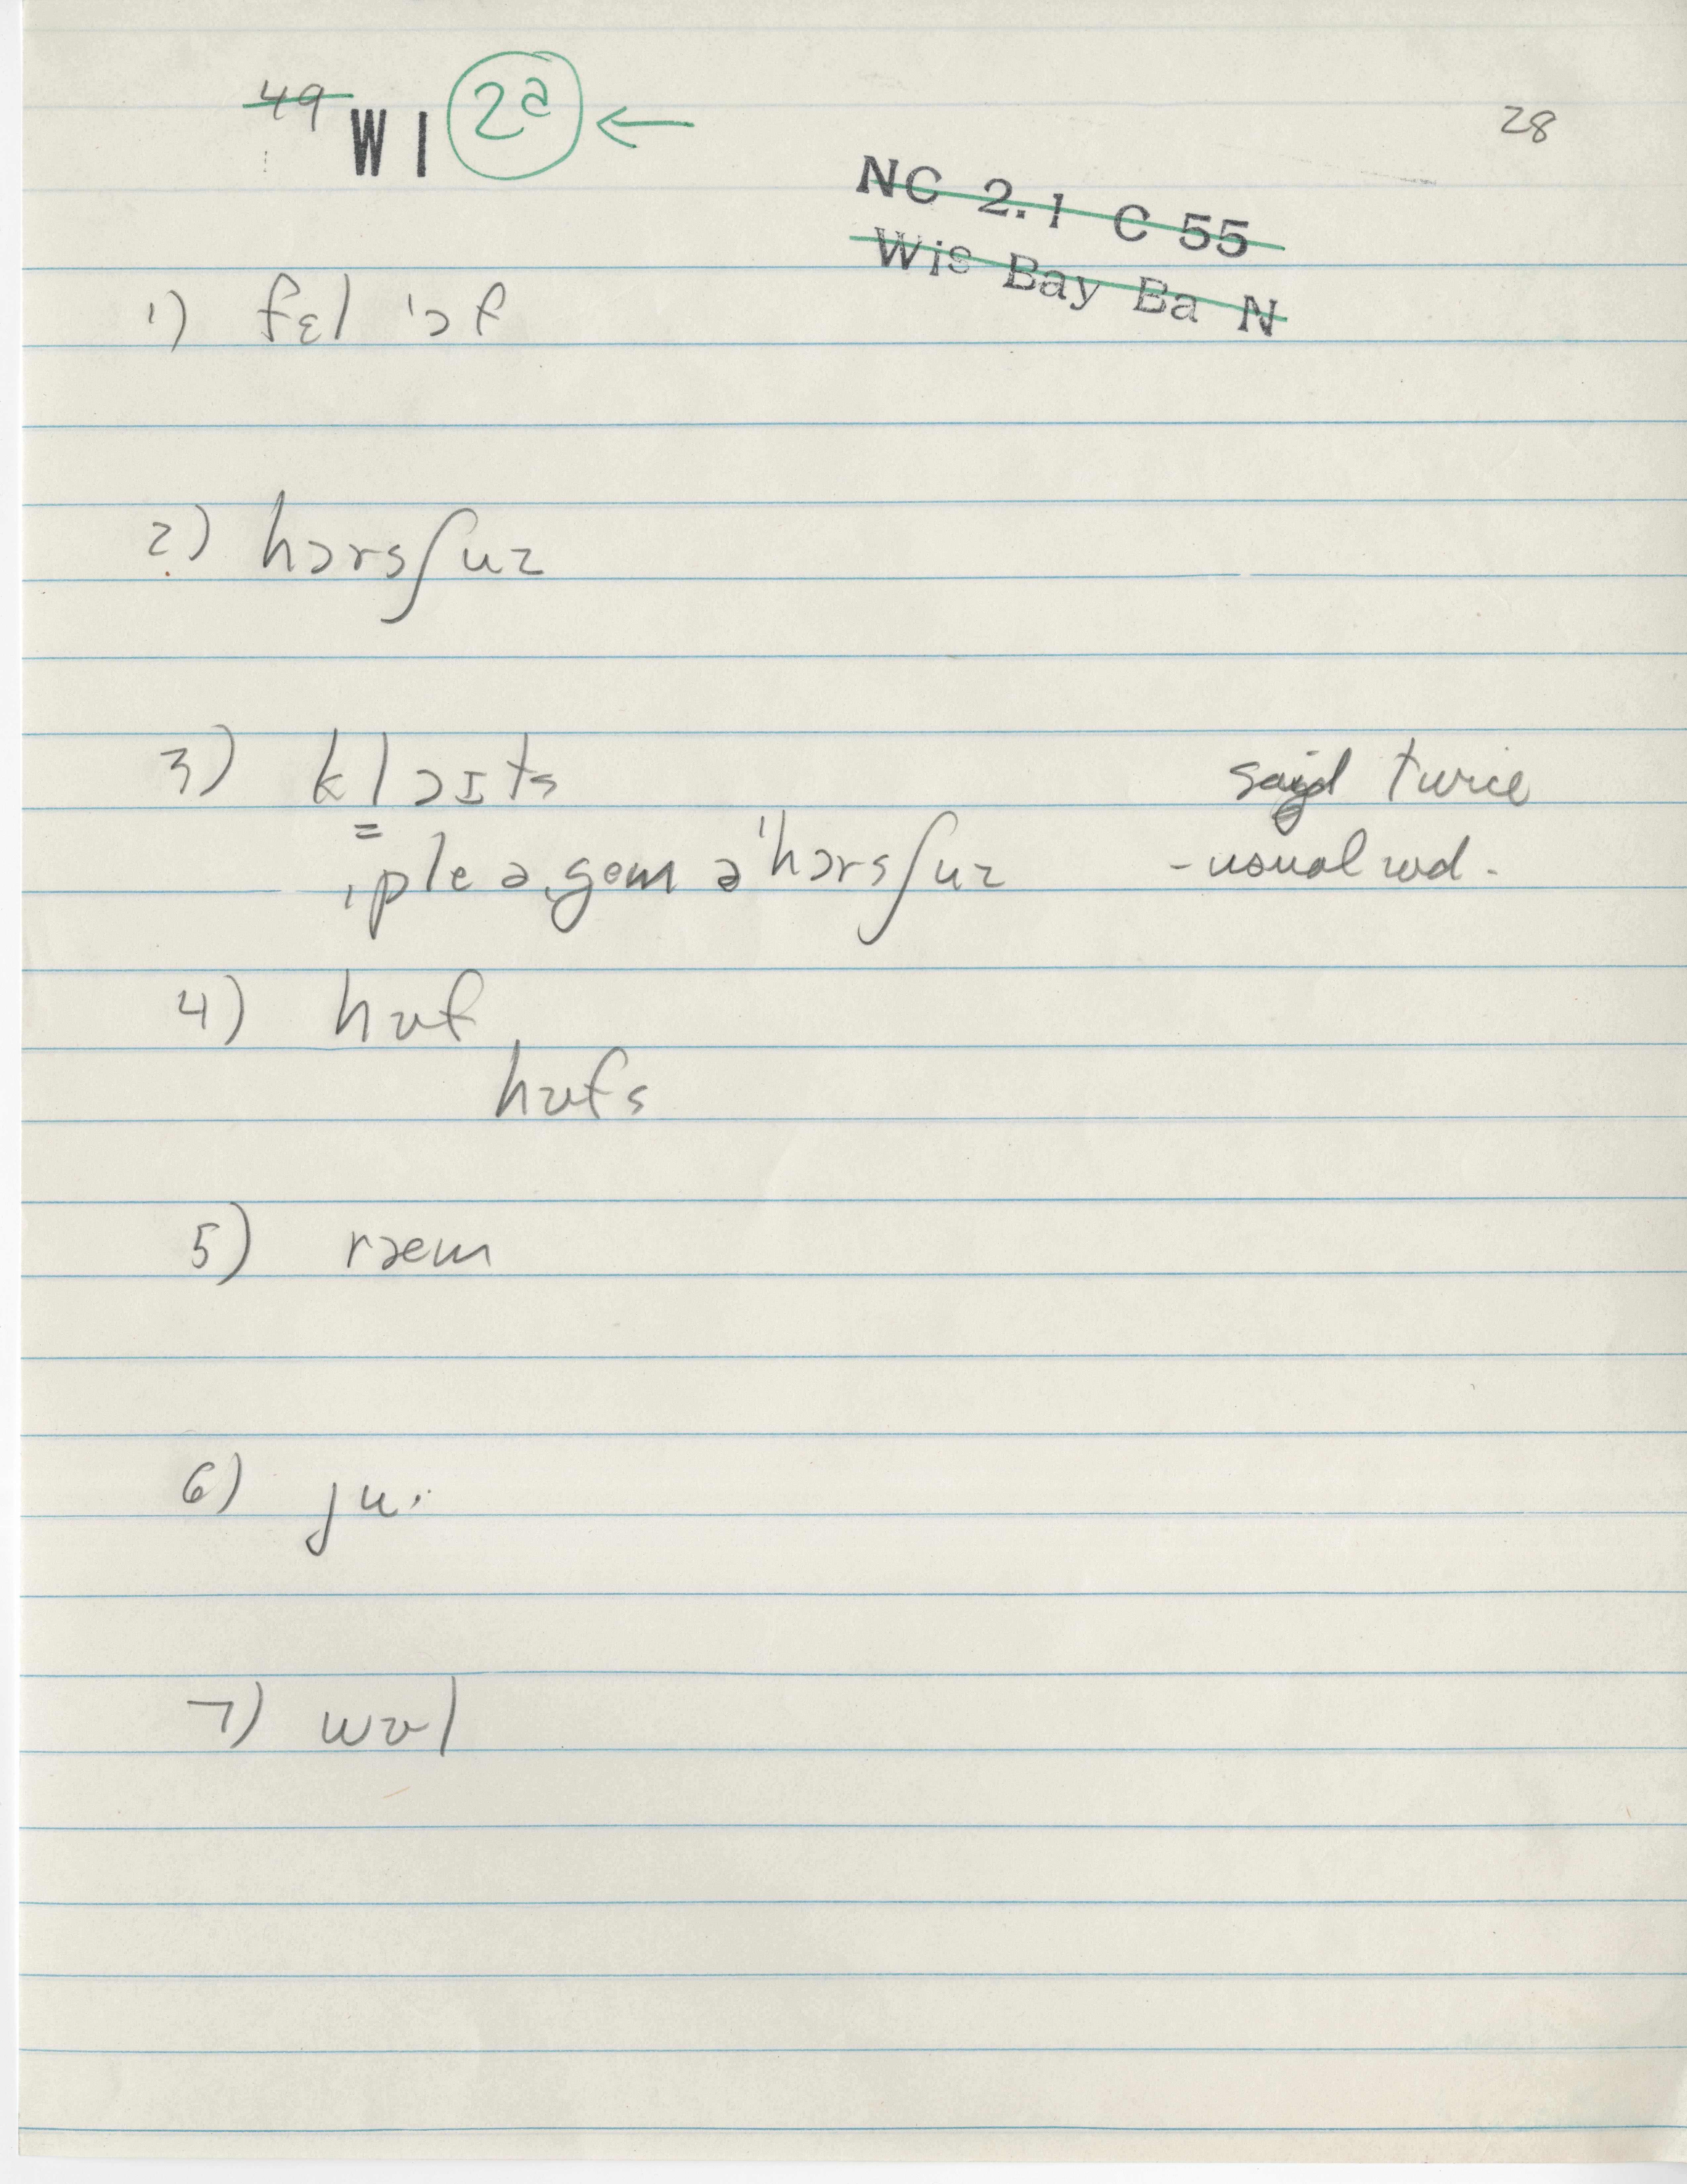 49 WI 2a ← 28
NC 2.1 C 55
Wis Bay Ba N
1) fɛl ˈɔf
2) hɔrsʃuz
3) klɔɪts said twice
= ˌple əˌgem əˈhɔrsʃuz - usual wd.
4) hʊf
hʊfs
5) ræm
6) ju·
7) wʊl